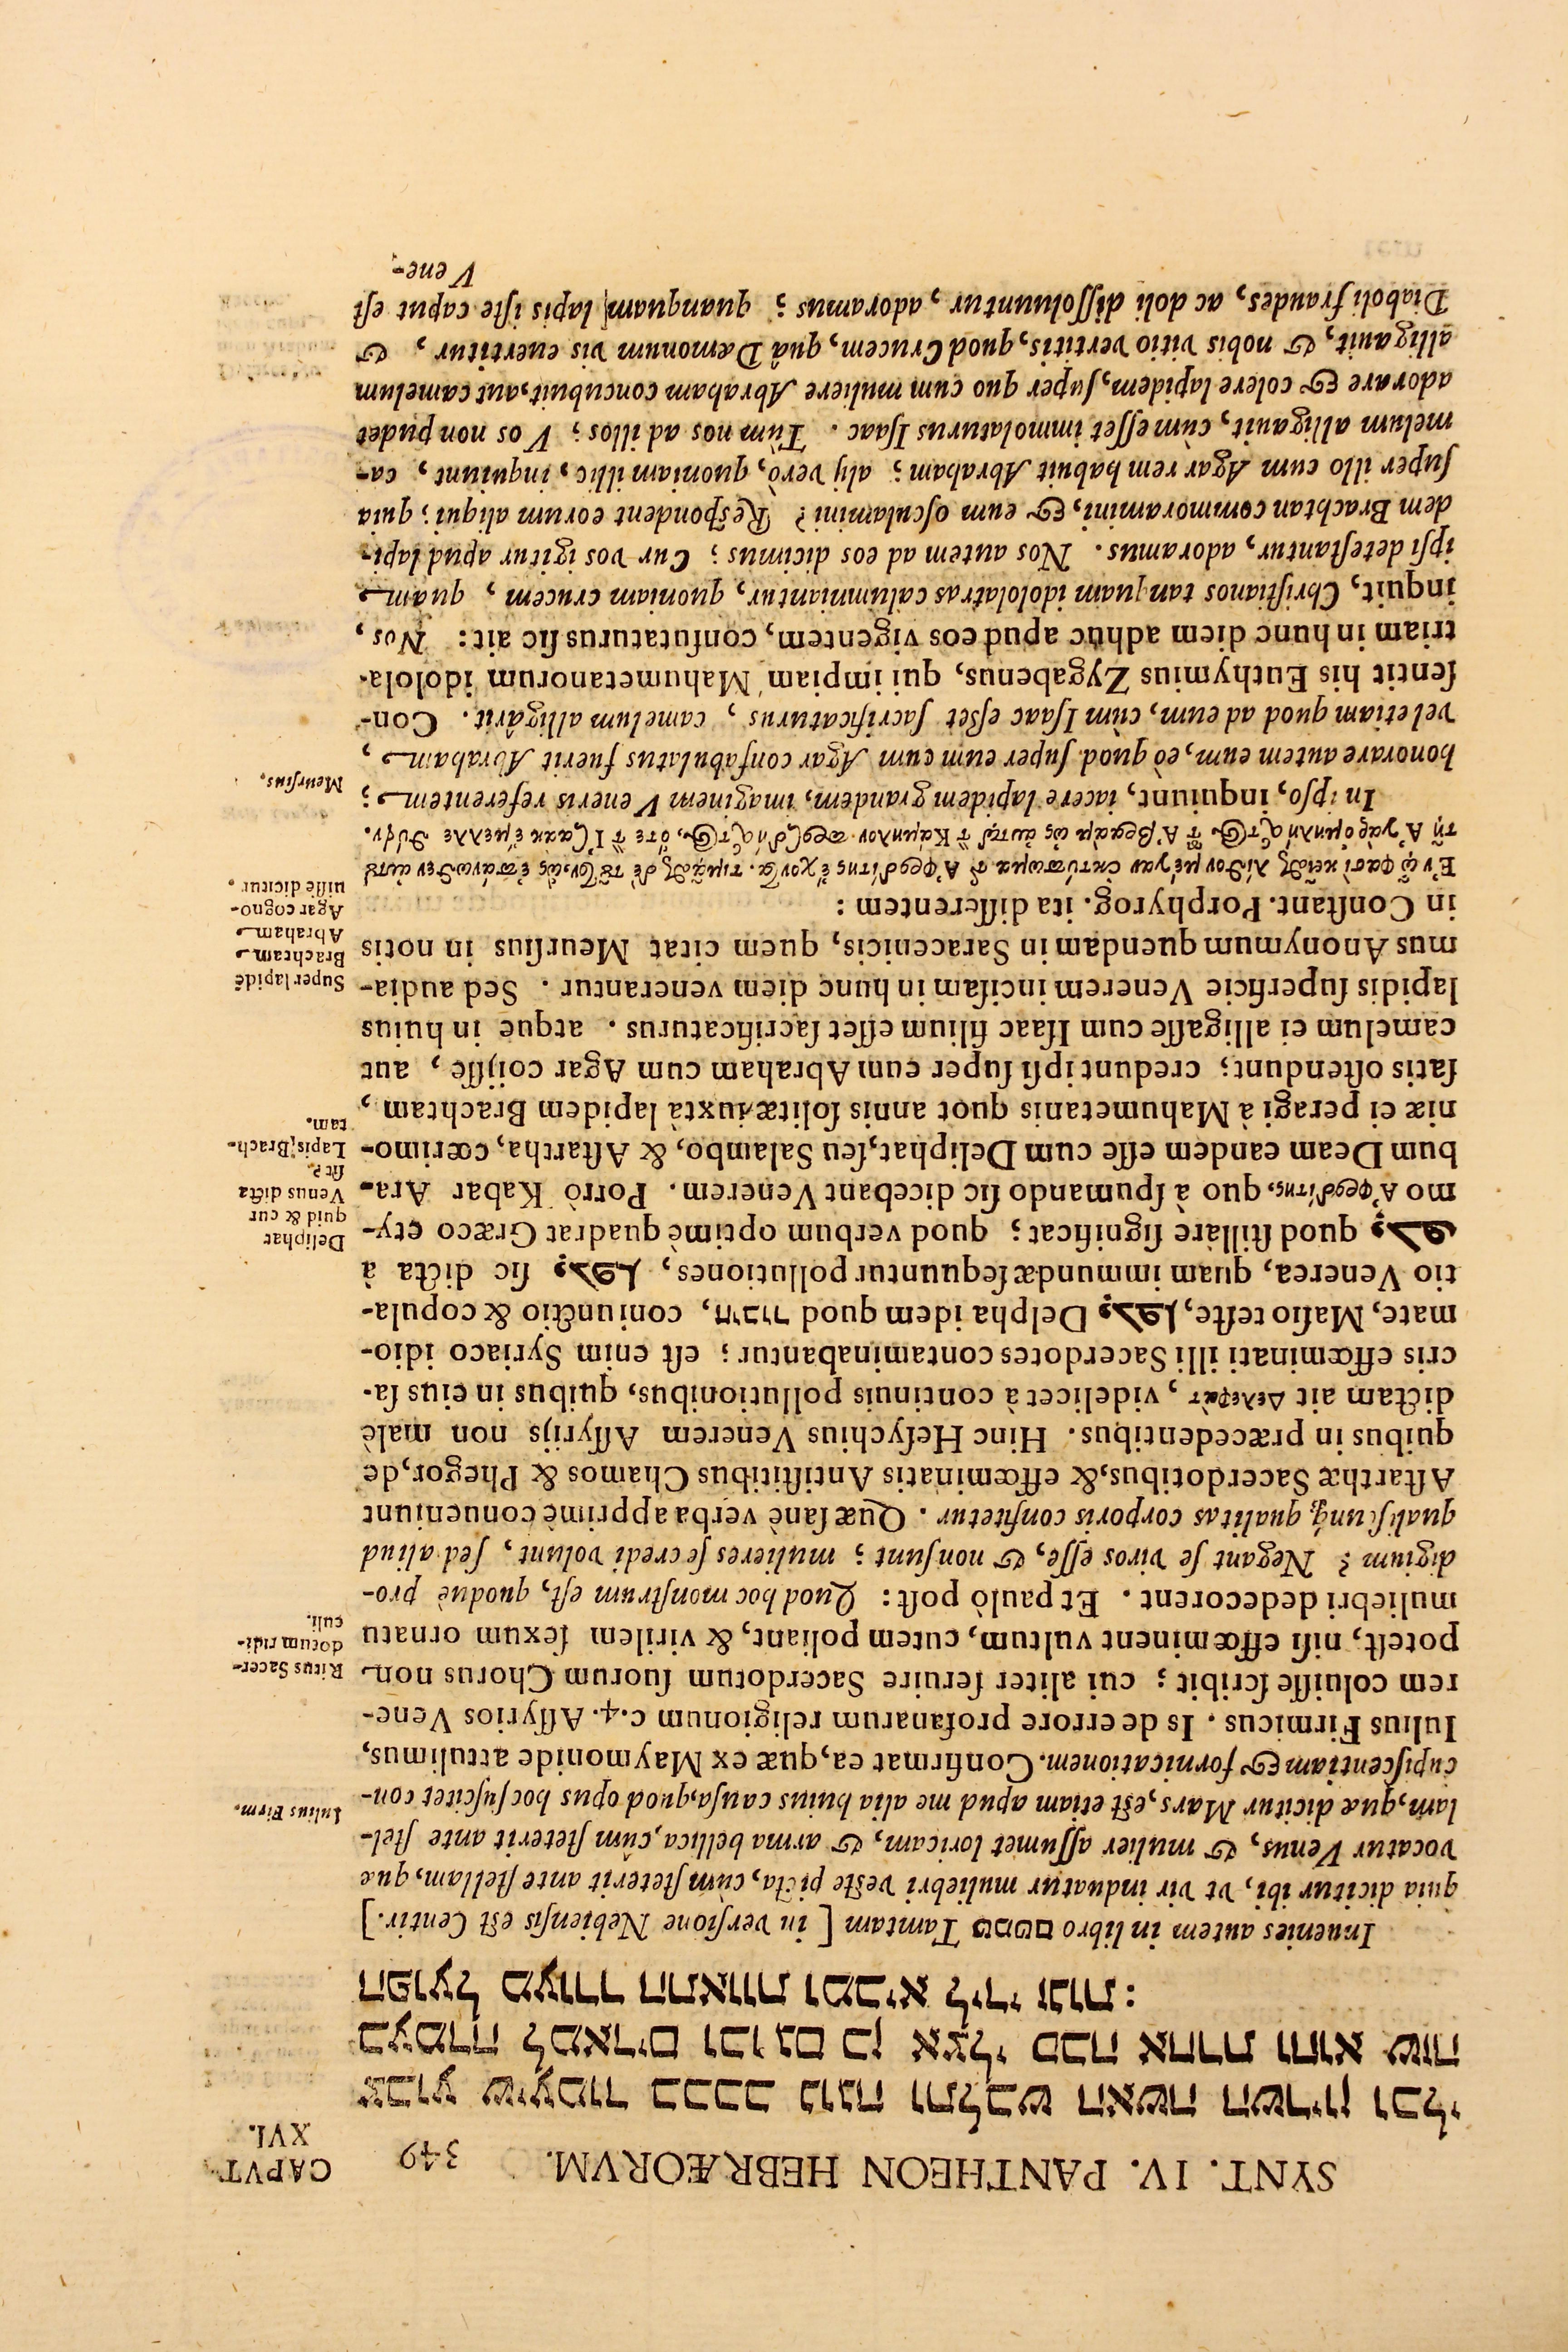 SYNT. IV. PANTHEON HEBRÆORVM. 349 CAPVT
XVI.
צבוע שיעמוד בככב נוגה ותלבש האשה השריון וכלי
בעמדה למאדים וכו גם כן אצלי סבה אחרת והוא שזה
הפועל מעורר התאוות ומביא לידי זנות :
Inuenies autem in libro טמטם Tamtam [ in versione Nebiensis est Centir.]
quia dicitur ibi, vt vir induatur muliebri veste picta, cùm steterit ante stellam, quæ
vocatur Venus, & mulier assumet loricam, & arma bellica, cùm steterit ante stel-
lam, quæ dicitur Mars, est etiam apud me alia huius causa, quod opus hoc suscitet con-
cupiscentiam & fornicationem. Confirmat ea, quæ ex Maymonide attulimus,
Iulius Firmicus. Is de errore profanarum religionum c. 4. Assyrios Vene-
rem coluisse scribit ; cui aliter seruire Sacerdotum suorum Chorus non
potest, nisi effœminent vultum, cutem poliant, & virilem sexum ornatu
muliebri dedecorent. Et paulò post : Quod hoc monstrum est, quodue pro-
digium ? Negant se viros esse, & non sunt ; mulieres se credi volunt, sed aliud
qualiscunq; qualitas corporis confitetur. Quæ sanè verba apprimè conueniunt
Astarthæ Sacerdotibus, & effœminatis Antistitibus Chamos & Phegor, de
quibus in præcedentibus. Hinc Hesychius Venerem Assyrijs non malè
dictam ait Δελεφὰτ, videlicet à continuis pollutionibus, quibus in eius sa-
cris effœminati illi Sacerdotes contaminabantur ; est enim Syriaco idio-
mate, Masio teste, ܕܠܦܐ Delpha idem quod זיווג, coniunctio & copula-
tio Venerea, quam immundæ sequuntur pollutiones, ܕܠܦܐ sic dicta à
ܕܠܦ quod stillare significat ; quod verbum optimè quadrat Græco ety-
mo Ἀφροδίτης, quo à spumando sic dicebant Venerem. Porrò Kabar Ara-
bum Deam eandem esse cum Deliphat, seu Salambo, & Astartha, cœrimo-
niæ ei peragi à Mahumetanis quot annis solitæ iuxtà lapidem Brachtam,
satis ostendunt ; credunt ipsi super eum Abraham cum Agar coijsse, aut
camelum ei alligasse cum Isaac filium esset sacrificaturus. atque in huius
lapidis superficie Venerem incisam in hunc diem venerantur. Sed audia-
mus Anonymum quendam in Saracenicis, quem citat Meursius in notis
in Constant. Porphyrog. ita disserentem :
Ε᾿ν ᾧ φασὶ κεῖσθαι λίθον μέγαν ἐκτύπωμα τ̃ Α᾿φροδίτης ἔχοντα. τιμᾶσθαι δὲ τοῦτον, ὡς ἐπάνωθεν αὐτοῦ
τῇ Α῎γαρ ὁμιλήσαντος τοῦ Α᾿βραὰμ ὡς αὐτῷ τὴν Κάμηλον προσδήσαντος, ὅτε τὸν Ι᾿σαὰκ ἔμελλε θύειν.
In ipso, inquiunt, iacere lapidem grandem, imaginem Veneris referentem ;
honorare autem eum, eò quòd super eum cum Agar confabulatus fuerit Abraham,
vel etiam quod ad eum, cùm Isaac esset sacrificaturus, camelum alligârit. Con-
sentit his Euthymius Zygabenus, qui impiam Mahumetanorum idolola-
triam in hunc diem adhuc apud eos vigentem, confutaturus sic ait : Nos,
inquit, Christianos tanquam idololatras calumniantur, quoniam crucem, quam
ipsi detestantur, adoramus. Nos autem ad eos dicimus ; Cur vos igitur apud lapi-
dem Brachtan commoramini, & eum osculamini ? Respondent eorum aliqui ; quia
super illo cum Agar rem habuit Abraham ; alij verò, quoniam illic, inquiunt, ca-
melum alligauit, cùm esset immolaturus Isaac. Tùm nos ad illos ; Vos non pudet
adorare & colere lapidem, super quo cum muliere Abraham concubuit, aut camelum
alligauit, & nobis vitio vertitis, quod Crucem, quâ Dæmonum vis euertitur, &
Diaboli fraudes, ac doli dissoluuntur, adoramus ; quanquam lapis iste caput est
Vene-
Iulius Firm.
Ritus Sacer-
dotum ridi-
culi.
Deliphat
quid & cur
Venus dicta
sit ?
Lapis Brach-
tam.
Super lapidē
Brachtam
Abraham
Agar cogno-
uisse dicitur.
Meursius.